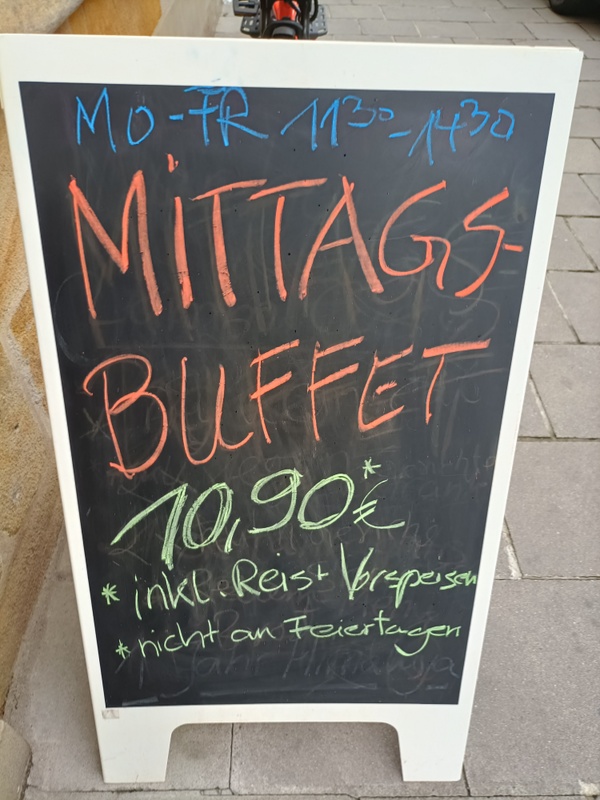 MO-FR 11³⁰-14³⁰
MiTTAGS-
BUFFET
10,90*€
* inkl. Reis + Vorspeisen
* nicht an Feiertagen